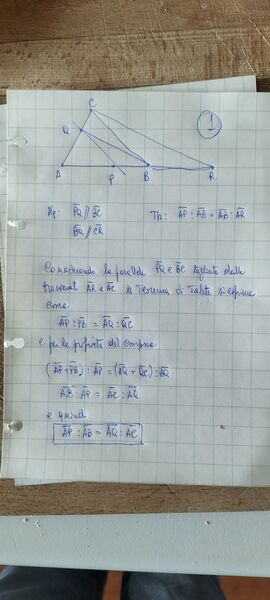 1
C
Q
A P B R
Hp: PQ // BC Th: AP : AB = AB : AR
BQ // CR
Considerando le parallele PQ e BC tagliate dalle
trasversali AR e AC il Teorema di Talete si esprime
come
AP : PB = AQ : QC
e per la proprietà del comporre
(AP+PB) : AP = (AQ + QC) : AQ
AB : AP = AC : AQ
e quindi
AP : AB = AQ : AC